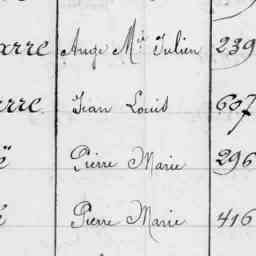 Ange M.ie Julien 239
Jean Louis 607
Pierre Marie 296
Pierre Marie 416